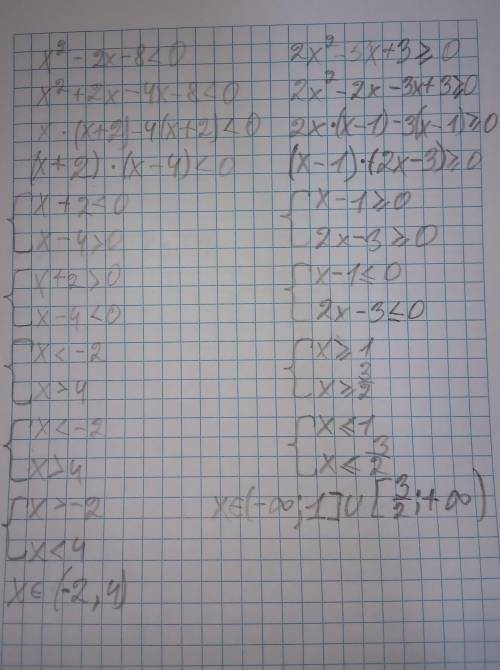 x² - 2x - 8 < 0
x² + 2x - 4x - 8 < 0
x · (x + 2) - 4(x + 2) < 0
(x + 2) · (x - 4) < 0
{ x + 2 < 0
x - 4 > 0
{ x + 2 > 0
x - 4 < 0
{ x < -2
x > 4
{ x < -2
x > 4
{ x > -2
x < 4
x ∈ (-2, 4)
2x² - 5x + 3 ≥ 0
2x² - 2x - 3x + 3 ≥ 0
2x · (x - 1) - 3(x - 1) ≥ 0
(x - 1) · (2x - 3) ≥ 0
{ x - 1 ≥ 0
2x - 3 ≥ 0
{ x - 1 ≤ 0
2x - 3 ≤ 0
{ x ≥ 1
x ≥ 3/2
{ x ≤ 1
x ≤ 3/2
x ∈ (-∞; 1] ∪ [3/2; +∞)